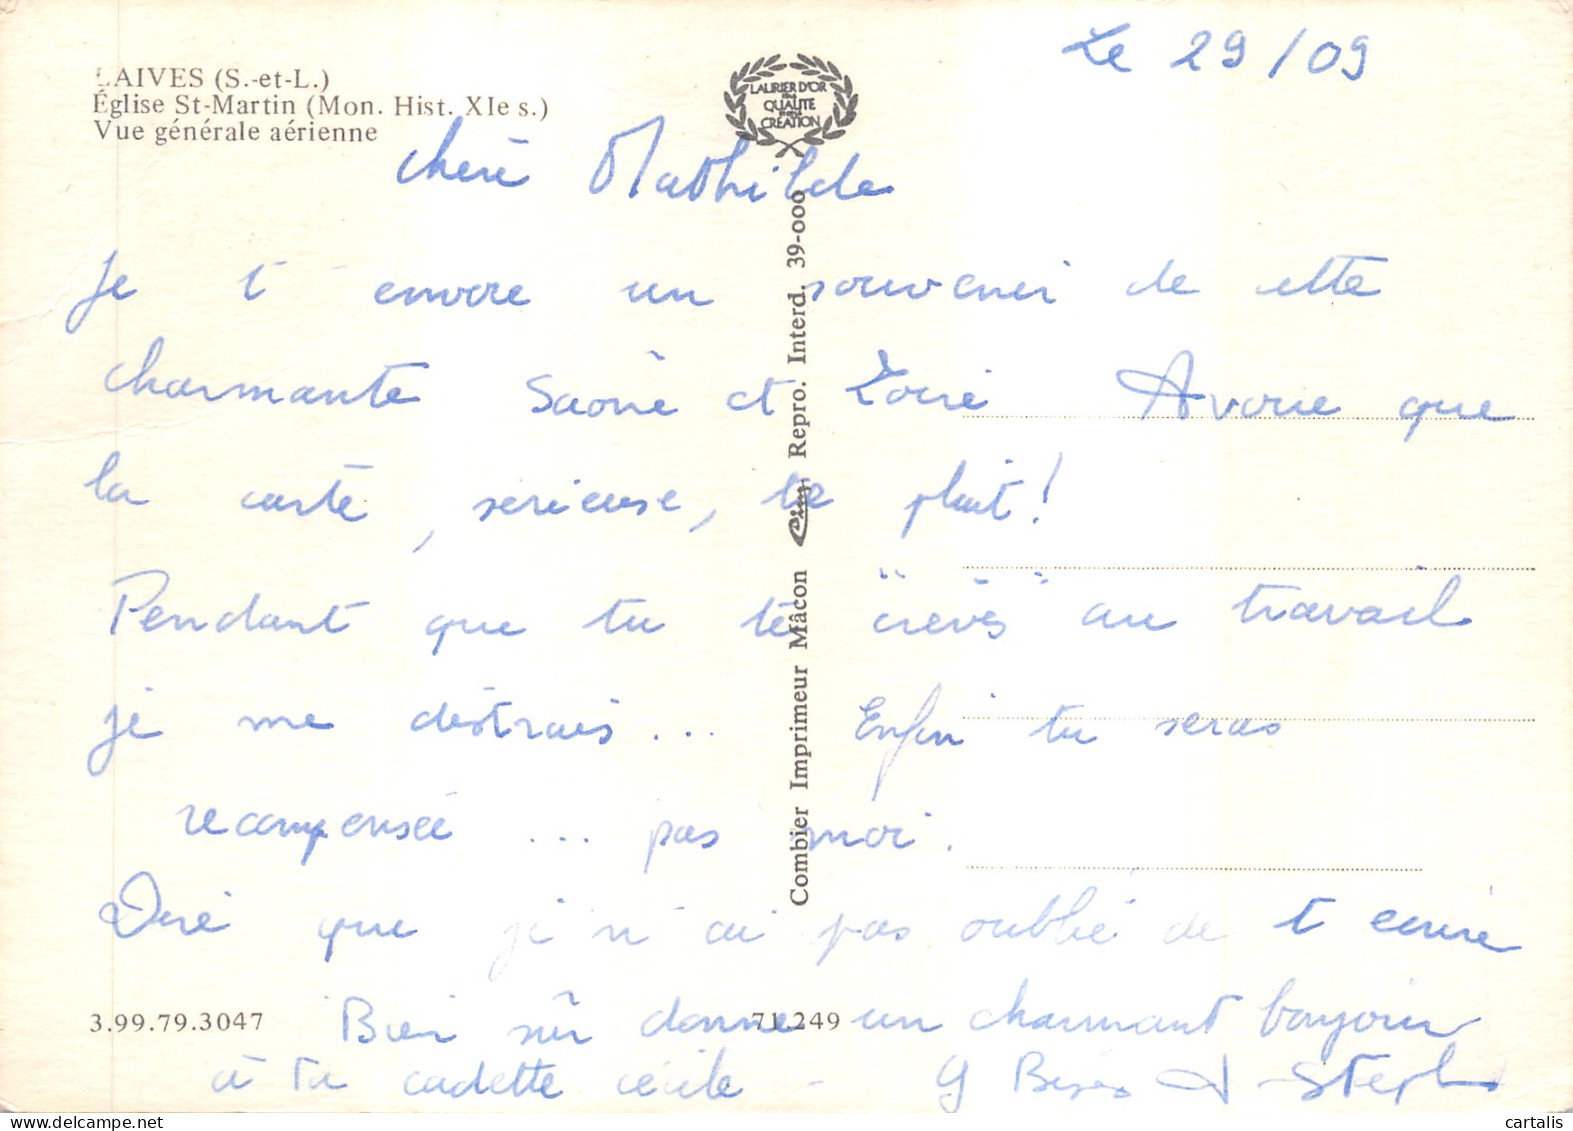 Le 29/09
LAIVES (S.-et-L.)
Église St-Martin (Mon. Hist. XIe s.)
Vue générale aérienne
LAURIER D'OR
QUALITE
CREATION
Chère Mathilde
Je t'envoie un souvenir de cette
charmante Saône et Loire Avoue que
la carte, serieuse, te plait!
Pendant que tu te "crèves" au travail
je me distrais... Enfin tu seras
recompensée ... pas moi.
Dire que je n'ai pas oublié de t ecrire
Bien sûr donne un charmant bonjour
à ta cadette cécile -
Combier Imprimeur Mâcon Cim Repro. Interd. 39-000
3.99.79.3047
71.249
cartalis